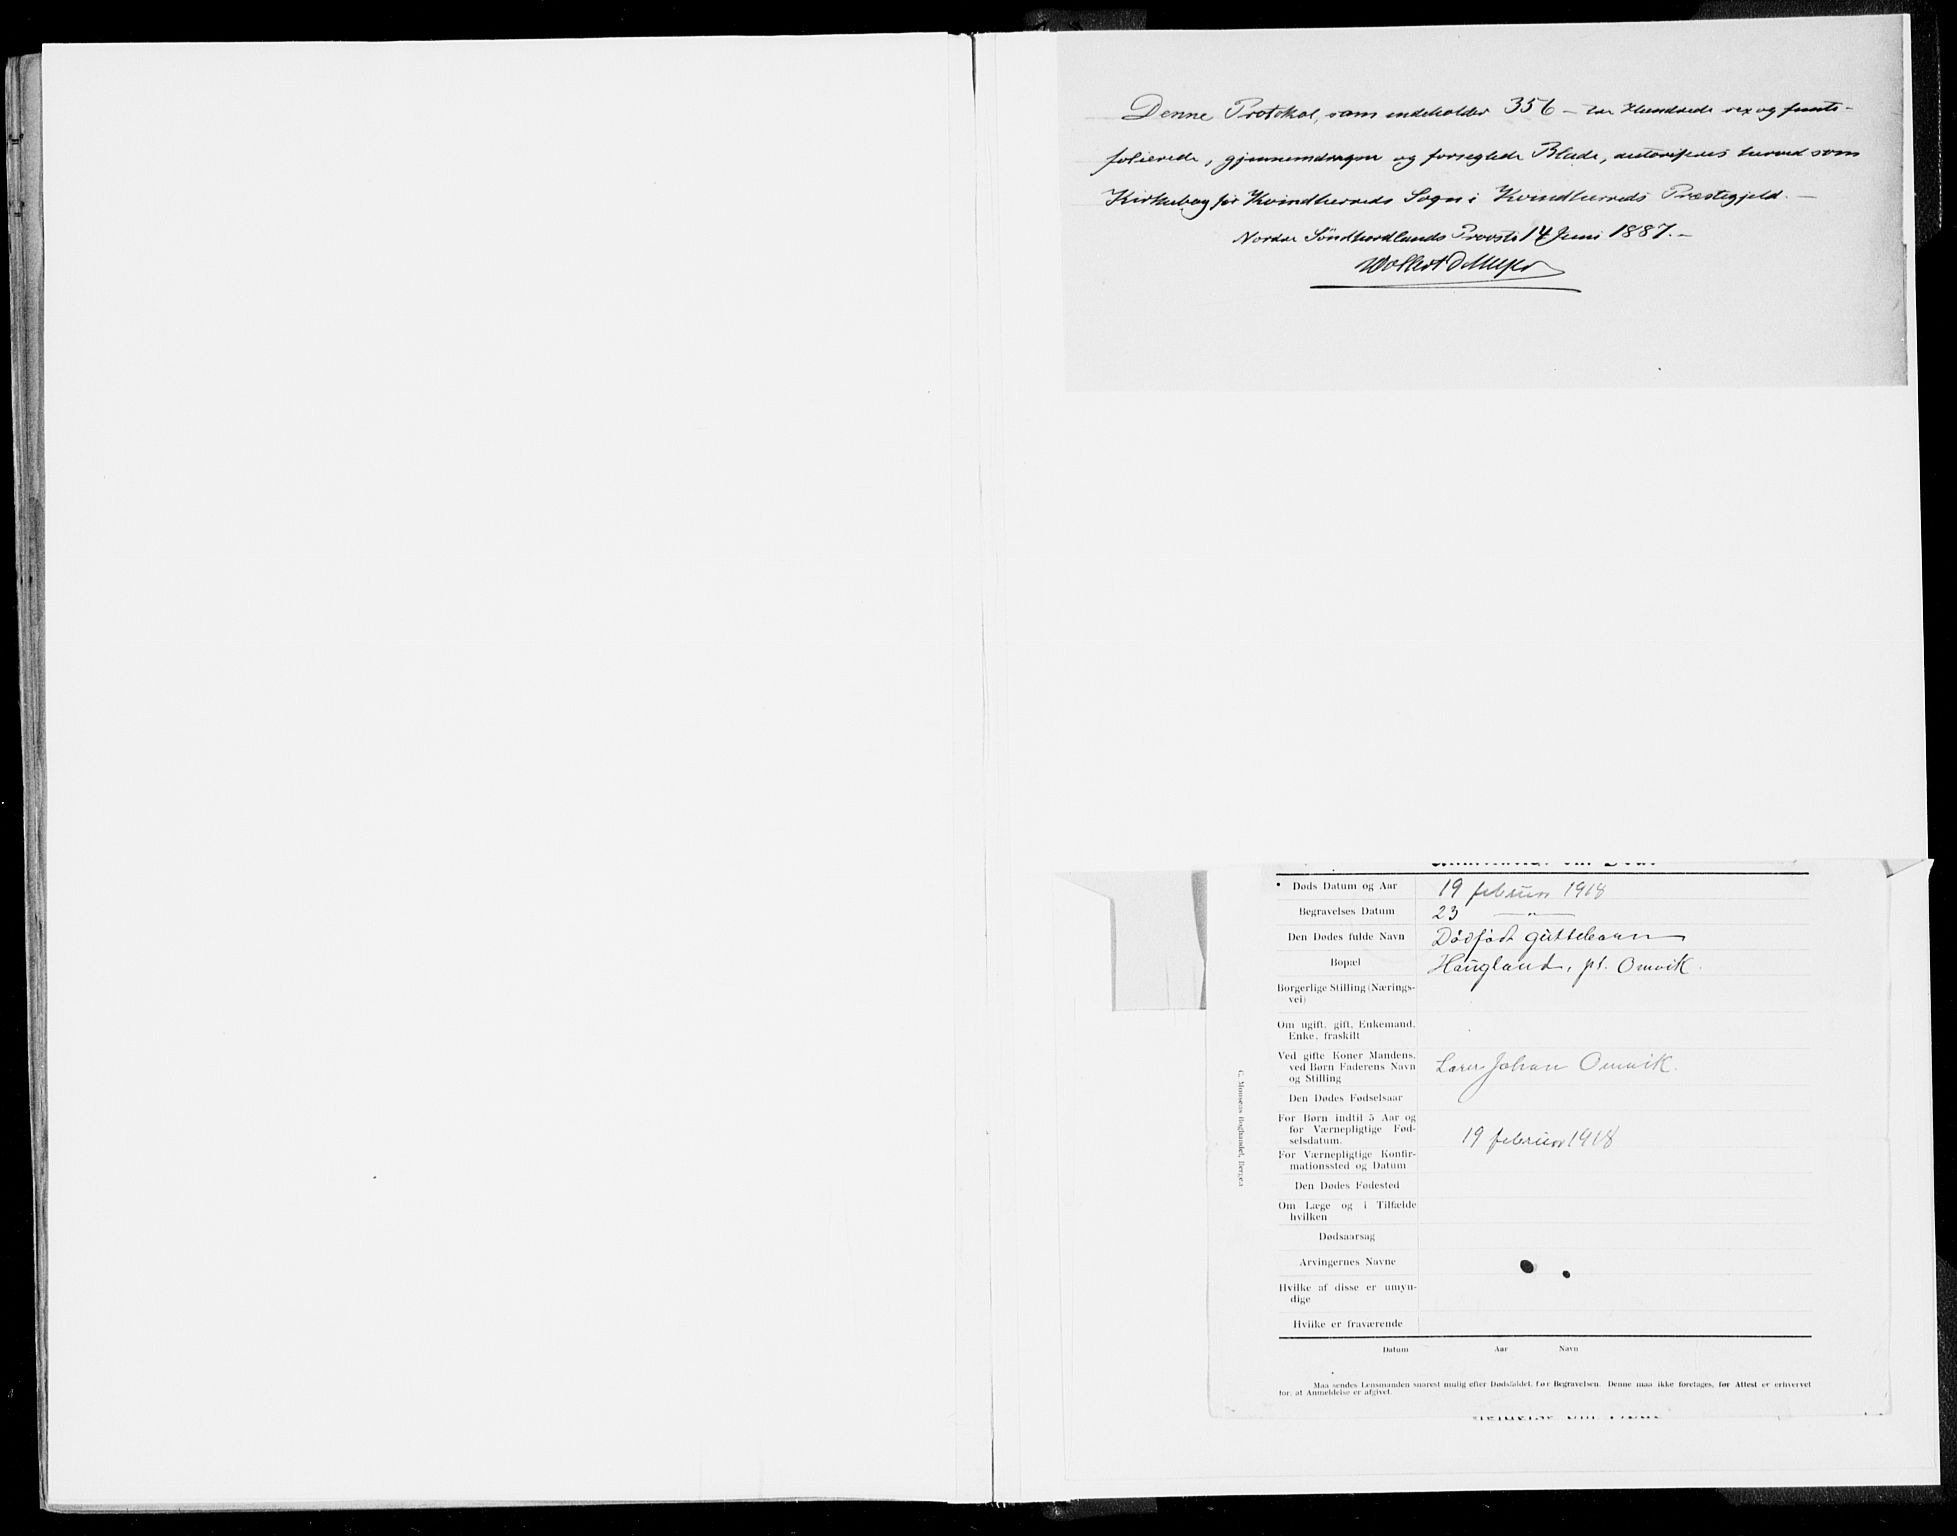 Denne Protokol, som indeholder 356 – tre Hundrede sex og femti –
folierede, gjennemdragne og forseglede Blade, autoriseres herved som
Kirkebog for Kvindherreds Sogn i Kvindherreds Præstegjeld. –
Nordre Søndhordlands Provsti 14 Juni 1887. –
Døds Datum og Aar 19 februar 1918
Begravelses Datum 23 — " —
Den Dødes fulde Navn Dødfødt guttebarn
Bopæl Haugland, pt. Omvik.
Borgerlige Stilling (Nærings-
vei)
Om ugift, gift, Enkemand,
Enke, fraskilt
Ved gifte Koner Mandens,
ved Børn Faderens Navn Johan Omvik.
og Stilling
Den Dødes Fødselsaar
For Børn indtil 5 Aar og
for Værnepligtige Fød-
selsdatum. 19 februar 1918
For Værnepligtige Konfir-
mationssted og Datum
Den Dødes Fødested
Om Læge og i Tilfælde
hvilken
Dødsaarsag
Arvingernes Navne
Hvilke af disse er umyn-
dige
Hvilke er fraværende
Datum Aar Navn
Maa sendes Lensmanden snarest mulig efter Dødsfaldet, før Begravelsen. Denne maa ikke foretages, før Attest er erhvervet
for, at Anmeldelse er afgivet.
G. Monsens Boghandel, Bergen